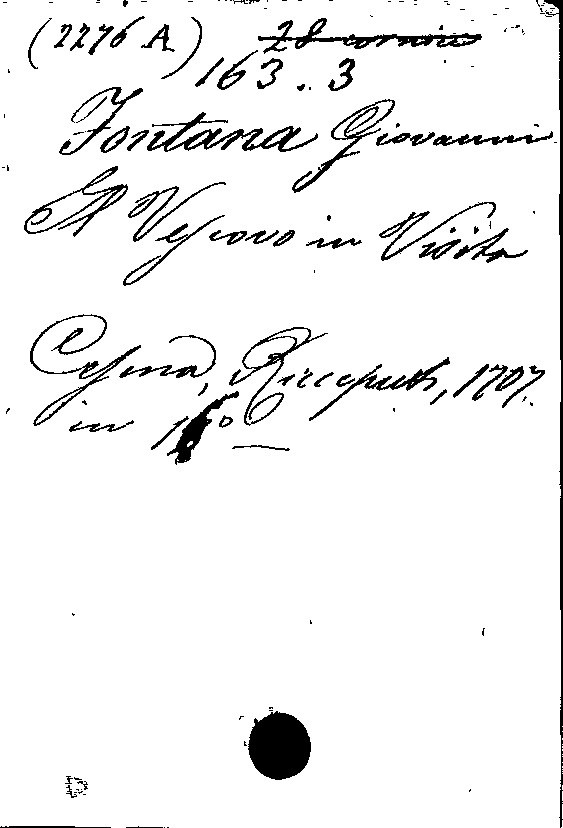 (2276 A) 28 cornice
163. 3
Fontana Giovanni
Il Vescovo in Visita
Cesena, Ricceputi, 1707.
in